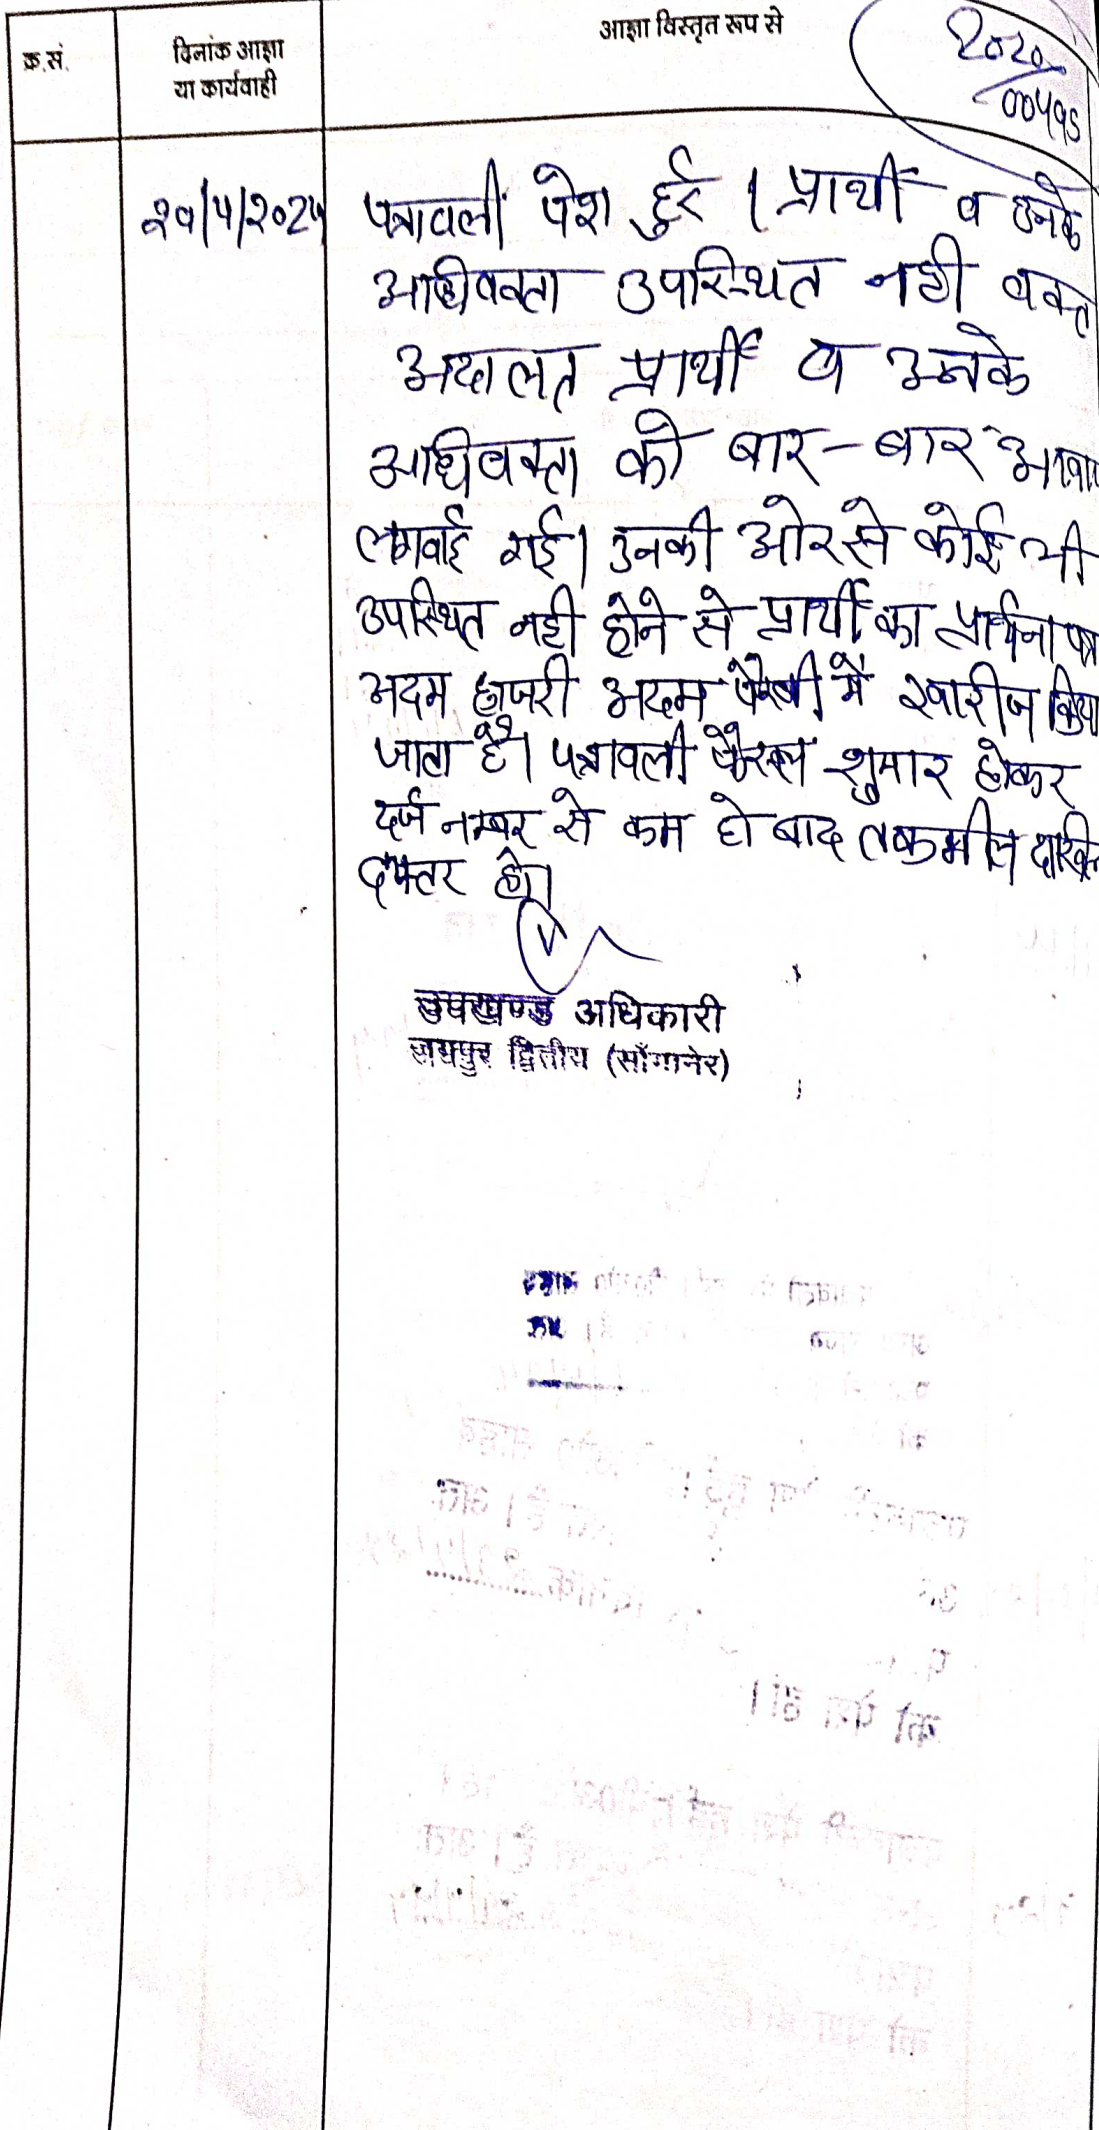 क्र.सं.
दिनांक आज्ञा
या कार्यवाही
आज्ञा विस्तृत रूप से
2020
पत्रावली पेश हुई । प्रार्थी व उनके
अधिवक्ता उपस्थित नही वक्त
अदालत प्रार्थी व उनके
अधिवक्ता को बार-बार
लगवाई गई। उनकी ओर से कोई भी
उपस्थित नही होने से प्रार्थी का प्रार्थना पत्र
अदम हाजरी अदम पैरवी में खारीज किया
जाता है। पत्रावली फैसल शुमार होकर
दर्ज नम्बर से कम हो बाद तकमील दाखिल
दफ्तर हो।
उपखण्ड अधिकारी
जयपुर द्वितीय (साँगानेर)